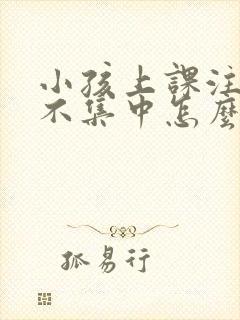 小孩上課注
不集中怎麼
孤易行